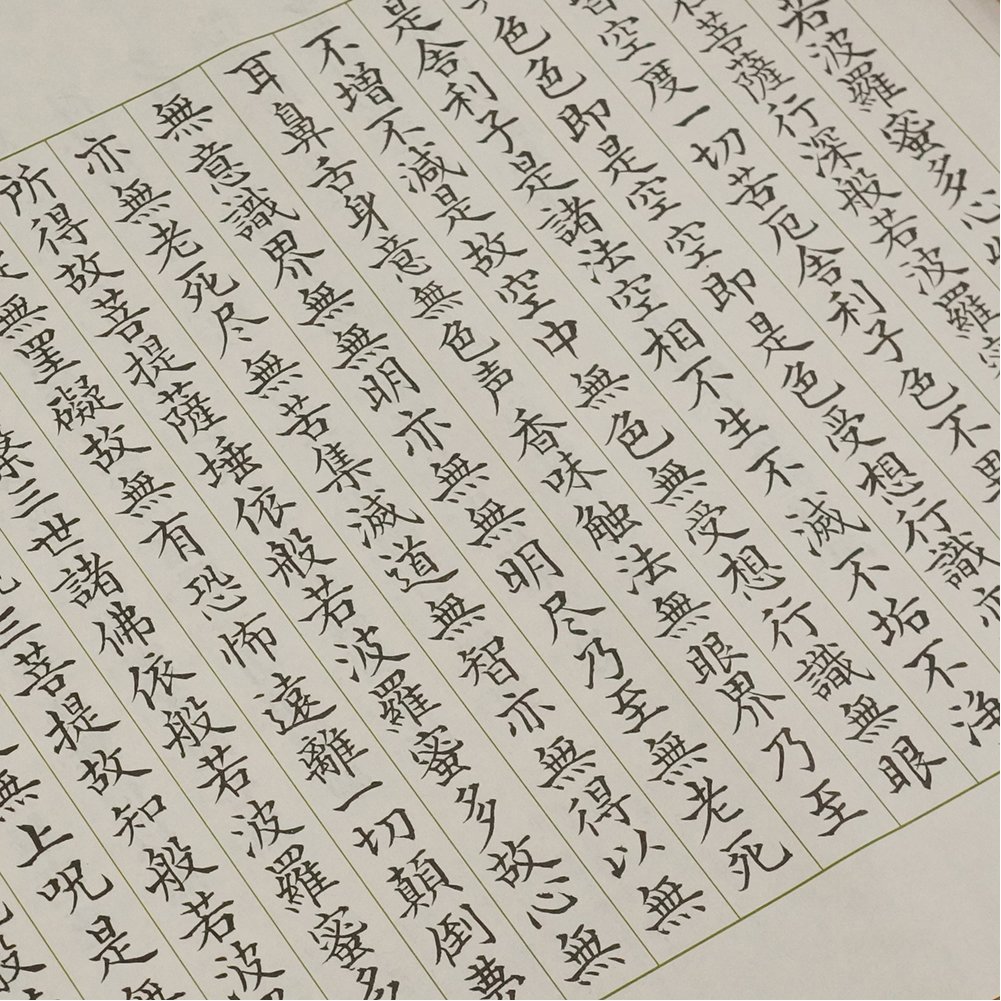 若波羅蜜多心
菩薩行深般若波羅蜜
空度一切苦厄舎利子色不異
色色即是空空即是色受想行識亦
是舎利子是諸法空相不生不滅不垢不浄
不増不減是故空中無色無受想行識無眼
耳鼻舌身意無色声香味触法無眼界乃至
無意識界無無明亦無無明尽乃至無老死
亦無老死尽無苦集滅道無智亦無得以無
所得故菩提薩埵依般若波羅蜜多故心無
無罣礙故無有恐怖遠離一切顛倒夢
三世諸佛依般若波羅蜜多
三菩提故知般若波
無上呪是無